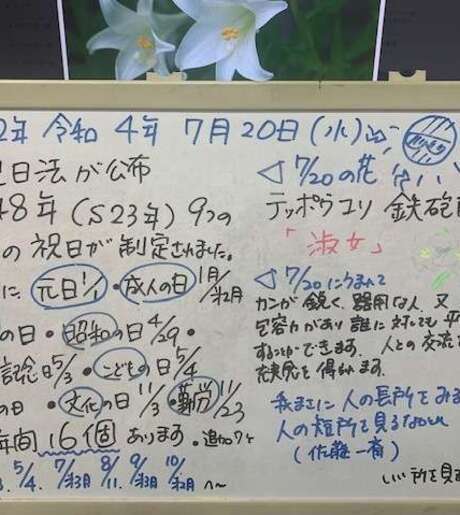 2年 令和 4年 7月20日(水)
日法が公布
48年(S23年)9つの
の祝日が制定されました。
に 元日1/1・成人の日 1月/第2月
の日・昭和の日4/29・
記念日5/3・こどもの日5/4
の日・文化の日11/3・勤労11/23
年間16個あります・追加7ヶ
5/4. 7/第3月 8/11. 9/第3月 10/第2月 へ〜
◁7/20の花
テッポウユリ 鉄砲
「淑女」
◁7/20にうまれて
カンが鋭く、器用な人、又
包容力があり誰に対しても平
することができます。人との交流
充実感を得られます。
我まさに人の長所をみる
人の短所を見るなかれ
(佐藤一斎)
いい所を見